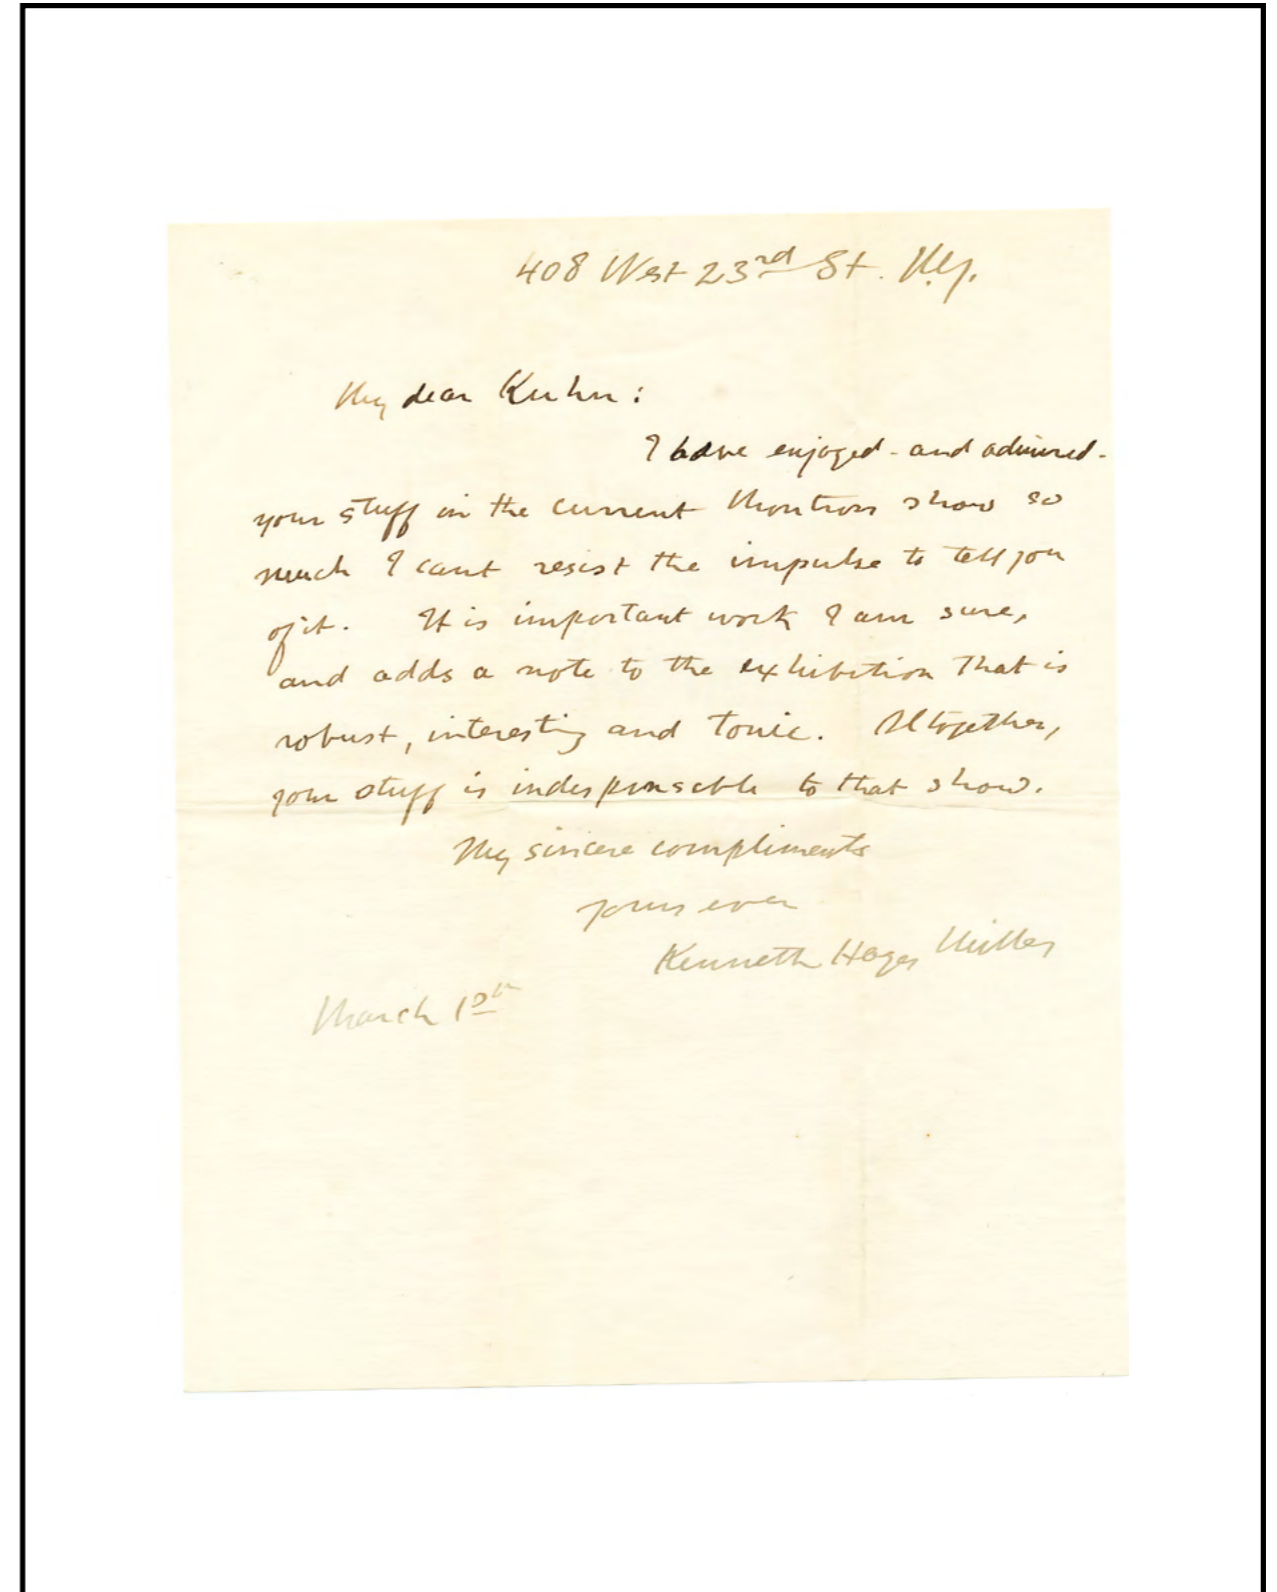 408 West 23rd St. N.Y.
My dear Kuhn:
I have enjoyed - and admired -
your stuff in the current Montross show so
much I cant resist the impulse to tell you
of it. It is important work I am sure,
and adds a note to the exhibition that is
robust, interesting and tonic. Altogether,
your stuff is indespensable to that show.
My sincere compliments
yours ever
Kenneth Hayes Miller
March